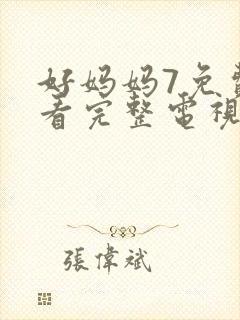 好妈妈7免費
看完整電視
張偉斌